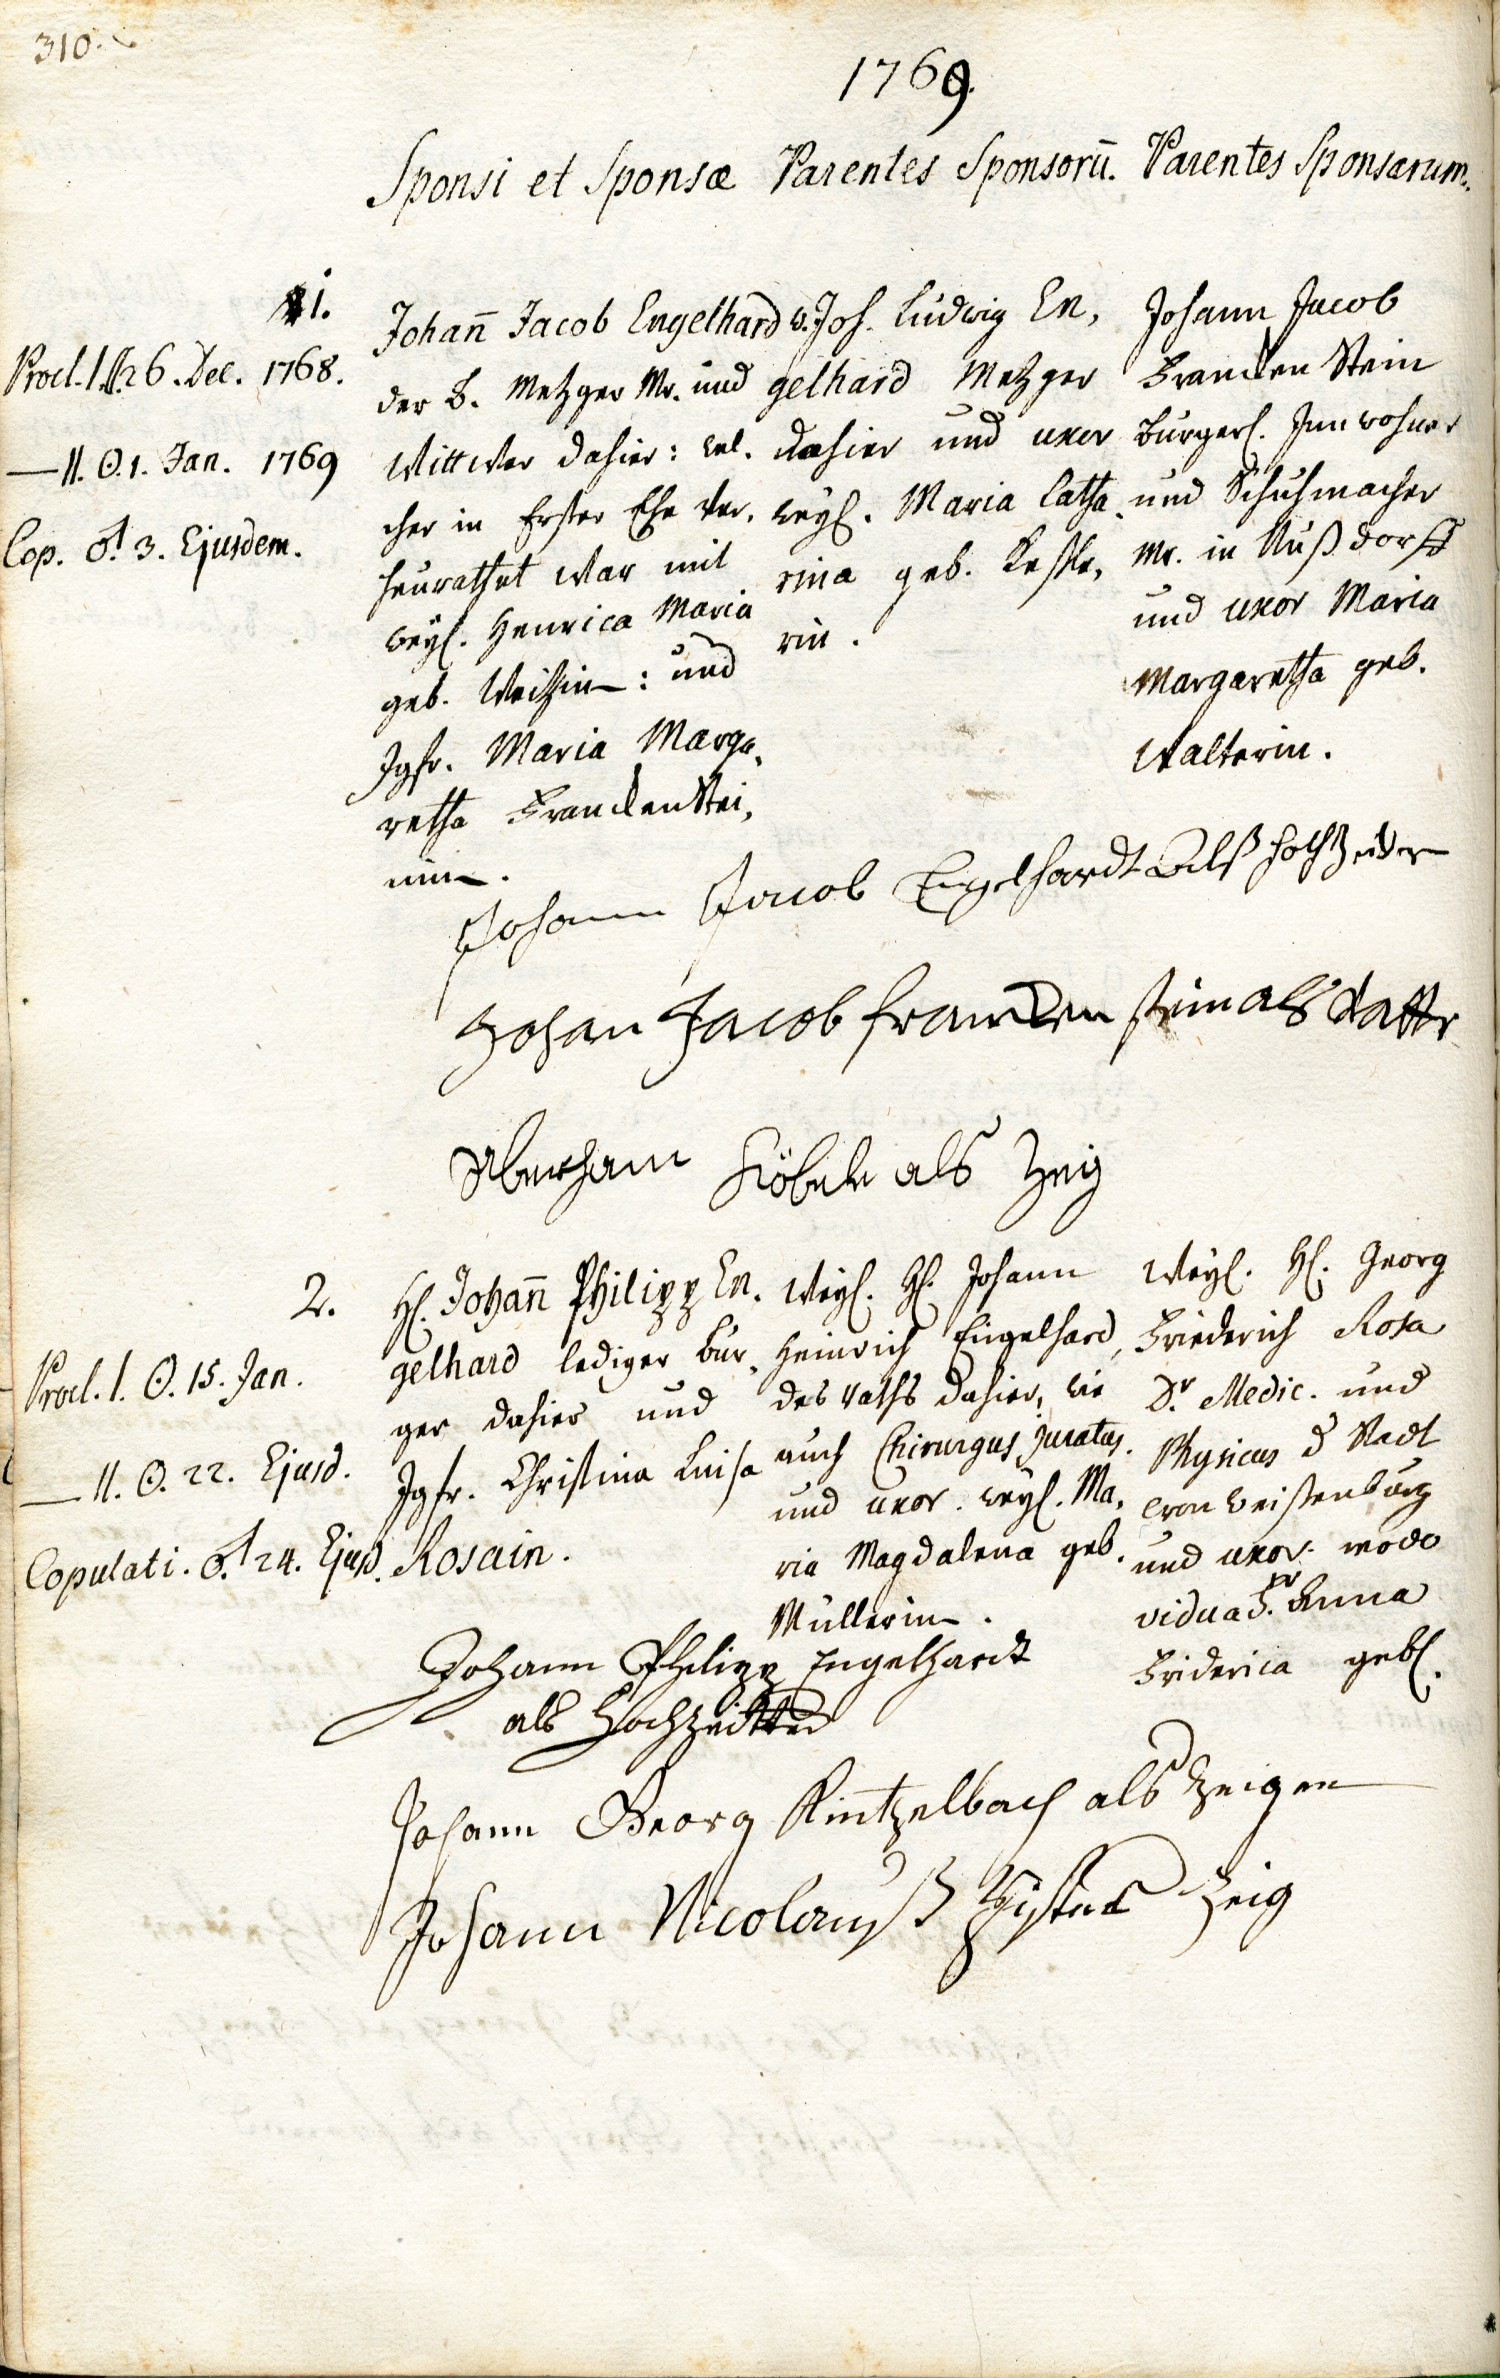 310.
1769.
Sponsi et Sponsæ Parentes Sponsorū. Parentes Sponsarum.
1.
Procl. I. 26. Dec. 1768.
— II. ⊙. 1. Jan. 1769
Cop. ♂. 3. Ejusdem.
Johan̄ Jacob Engelhard
der B. Metzger Mr. und
Wittwer dahier: wel,
cher in Erster Ehe ver,
heurathet war mit
weyl. Henrica Maria
geb. : und
Jgfr. Maria Marga,
retha Franckenstei,
nin.
w. Joh. Ludwig En,
gelhard Metzger
dahier und uxor
weyl. Maria Catha,
rina geb. Keßle,
rin.
Johann Jacob
Francken Stein
burgerl. Innwohner
und Schuhmacher
Mr. in Nußdorff
und uxor Maria
Margaretha geb.
Walterin.
Johann Jacob Engelhardt Alß hochzeider
Johan Jacob francken stein als Vatter
als Zeig
2.
Procl. I. ⊙. 15. Jan.
— II. ⊙. 22. Ejusd.
Copulati. ♂. 24. Ejusd.
H. Johan̄ Philipp En,
gelhard lediger bur,
ger dahier und
Jgfr. Christina Luisa
Rosain.
Weyl. H. Johann
Heinrich Engelhard,
des Raths dahier, wie
auch Chirurgus juratus.
und uxor. weyl. Ma,
ria Magdalena geb.
Müllerin.
Weyl. H. Georg
Friederich Rosa
Dr. Medic. und
Physicus d Stadt
Cron Weissenburg
und uxor. modo
vidua Fr. Anna
Friderica gebl.
Johann Philipp Engelhardt
als Hochzeitter
Johann Georg Kintzelbach als Zeigen
Johann Nicolauß Zeig